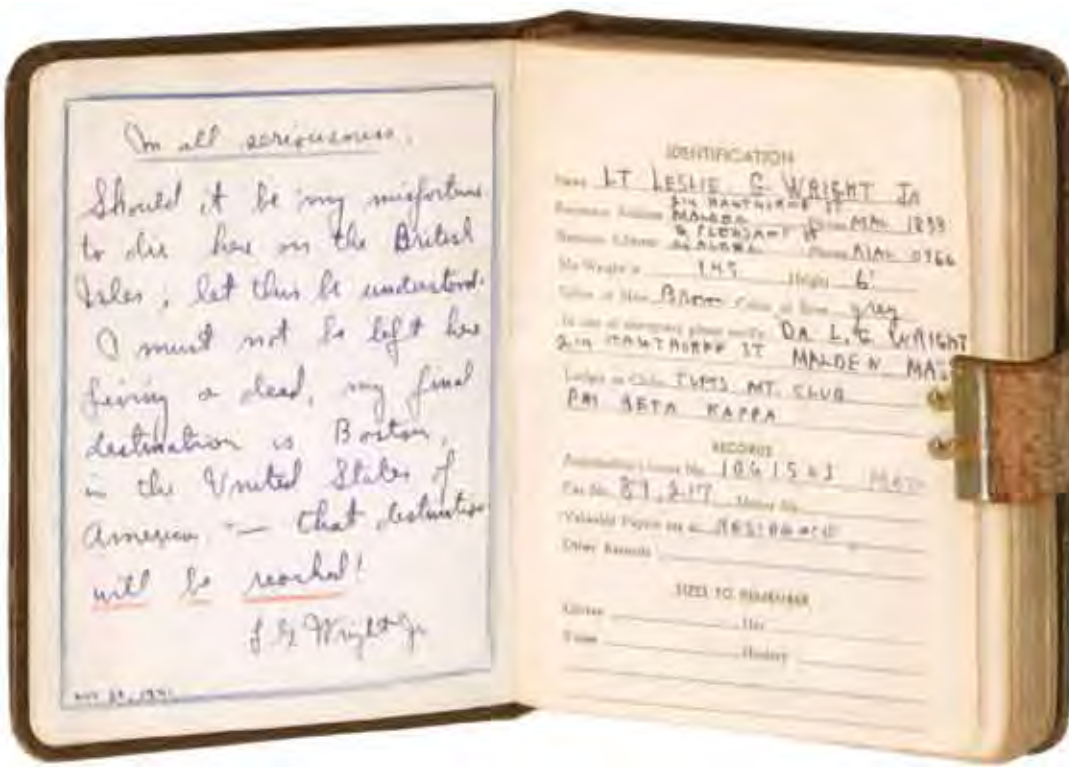 In all seriousness.
Should it be my misfortune
to die here on the British
Isles, let this be understood.
I must not be left here
living or dead, my final
destination is Boston,
in the United States of
America, — that destination
will be reached!
L G Wright Jr
IDENTIFICATION
Name LT LESLIE G. WRIGHT JR
214 HAWTHORNE ST
MALDEN Phone MAL 1833
PLEASANT ST
MALDEN Phone MAL 0766
My Weight is 145 Height 6'
Color of Hair BROWN Color of Eyes grey
In case of emergency please notify DR L. G. WRIGHT
214 HAWTHORNE ST MALDEN MASS
Lodges or Clubs TUFTS MT. CLUB
PHI BETA KAPPA
RECORDS
Automobile License No. 1061563
Car No. 89,217 Motor No.
Valuable Papers are at RESIDENCE
Other Records
SIZES TO REMEMBER
Gloves Hat
Hosiery